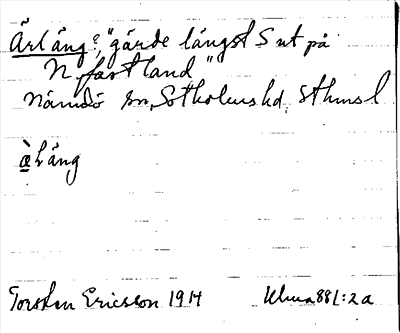 Ärläng?, "gärde längst S ut på
N. fastland"
Nämdö sn, Sotholms hd, Sthms l
àläng
Torsten Ericsson 1914 Ulma 881:2a